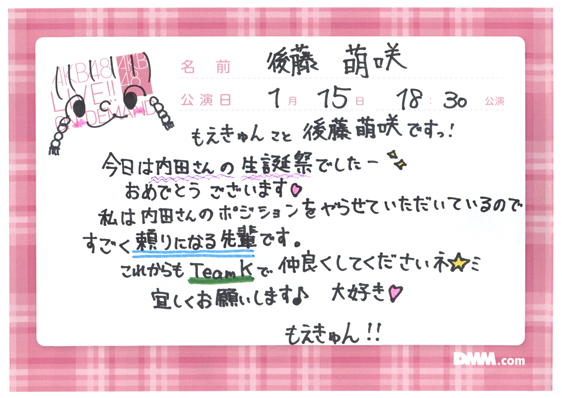 AKB48
LIVE!!
ON DEMAND
名前 後藤 萌咲
公演日 1月 15日 18:30 公演
もえきゅん こと 後藤萌咲ですっ!
今日は内田さんの生誕祭でしたー
おめでとうございます♥
私は内田さんのポジションをやらせていただいているので
すごく頼りになる先輩です。
これからも TeamKで 仲良くしてくださいネ☆ミ
宜しくお願いします♪ 大好き♥
もえきゅん!!
DMM.com